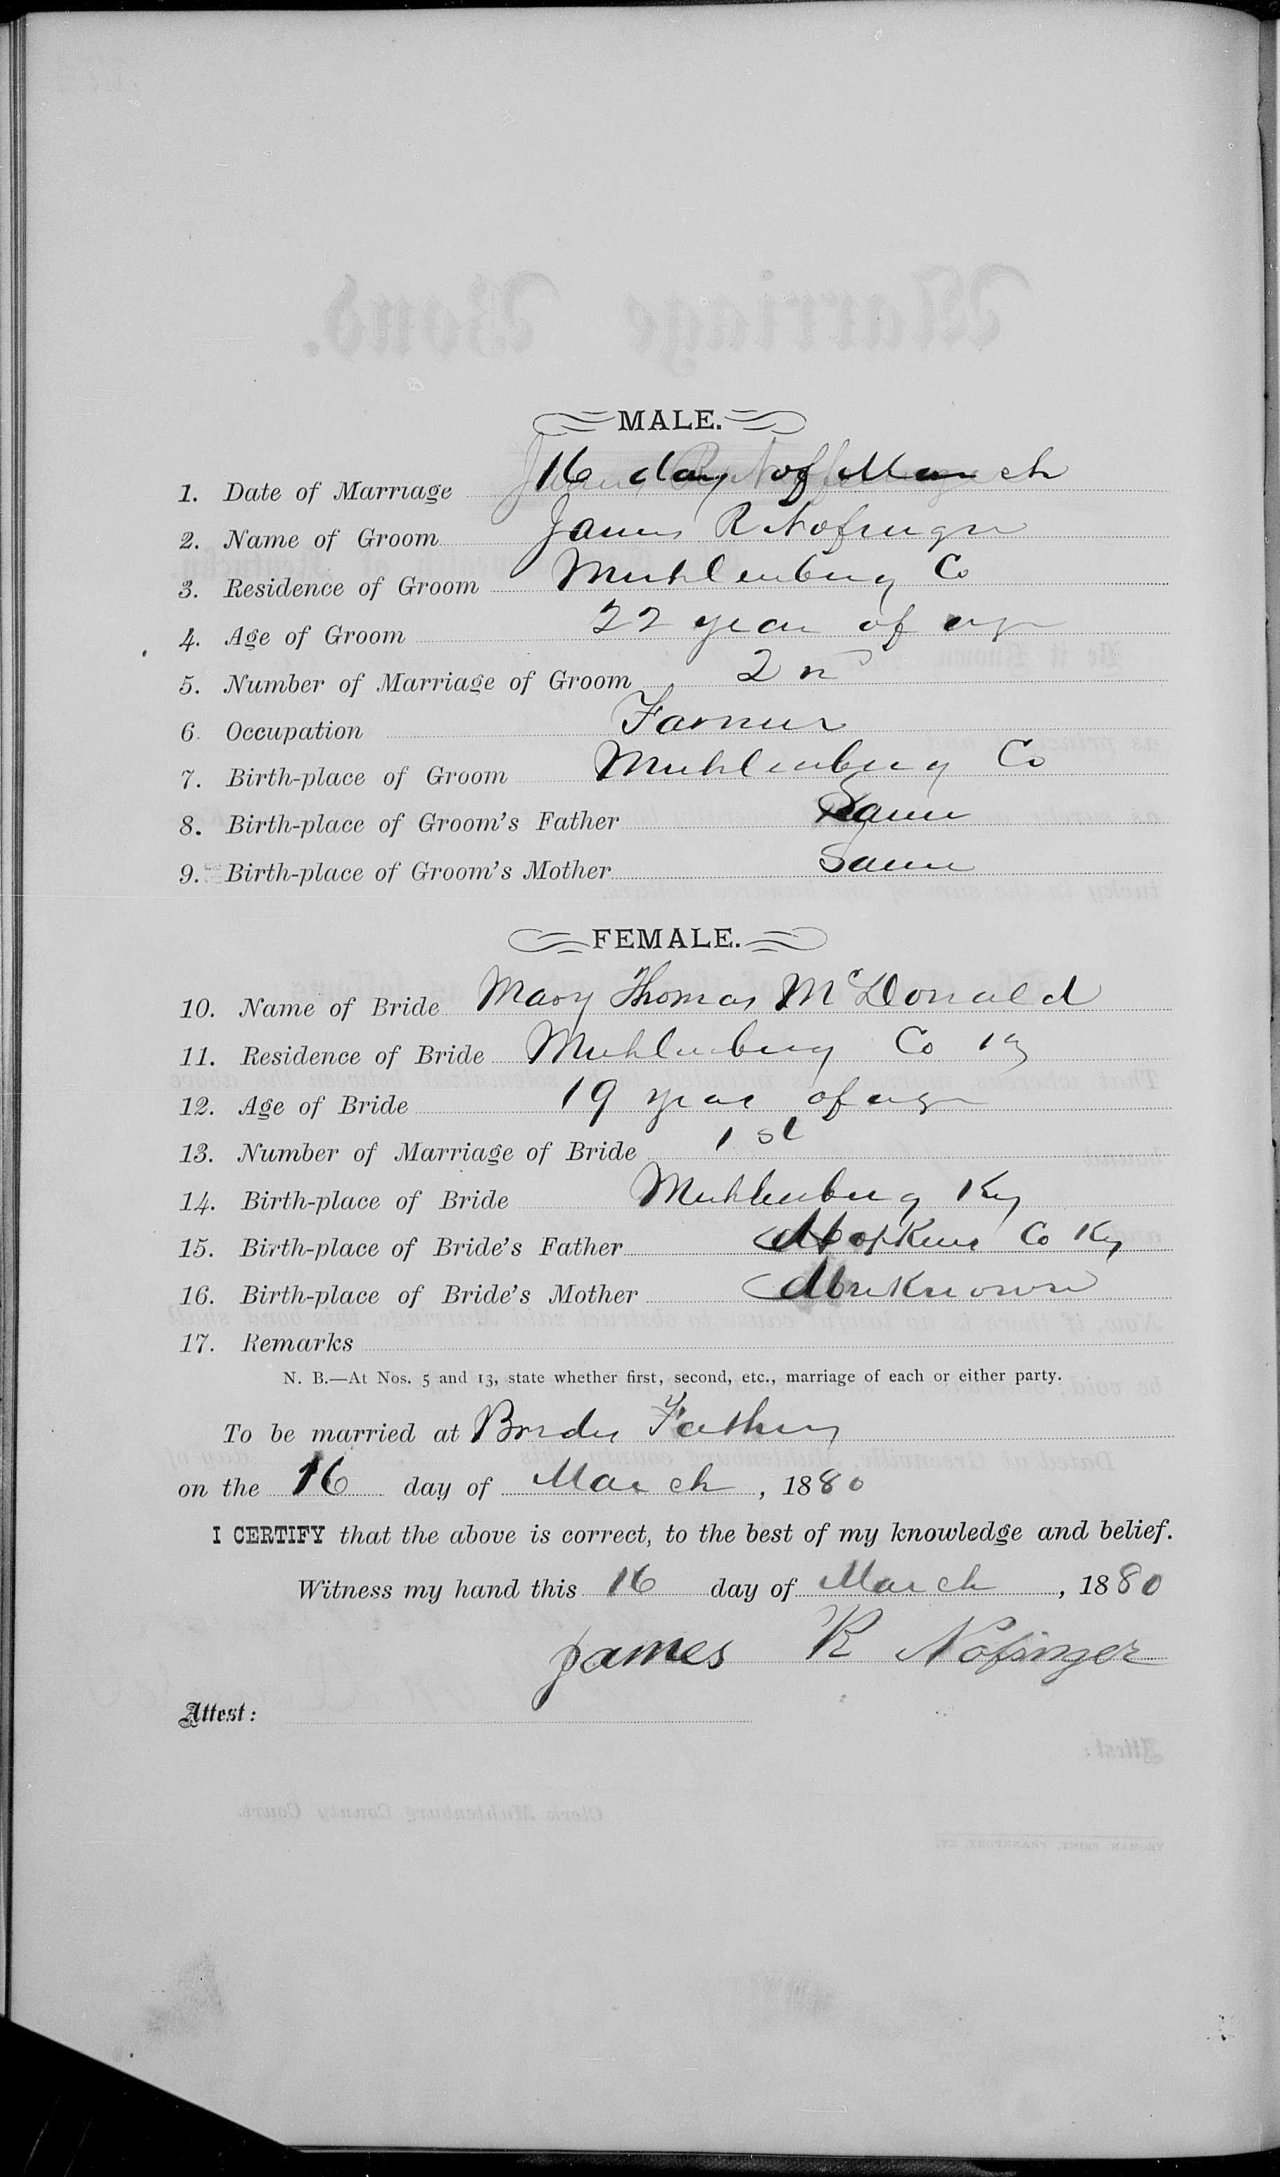 MALE.
1. Date of Marriage 16 day of March
2. Name of Groom James R Nofinger
3. Residence of Groom Muhlenburg Co
4. Age of Groom 22 year of age
5. Number of Marriage of Groom 2n
6. Occupation Farmer
7. Birth-place of Groom Muhlenburg Co
8. Birth-place of Groom's Father Same
9. Birth-place of Groom's Mother Same
FEMALE.
10. Name of Bride Mary Thomas McDonald
11. Residence of Bride Muhlenburg Co Ky
12. Age of Bride 19 year of age
13. Number of Marriage of Bride 1st
14. Birth-place of Bride Muhlenburg Ky
15. Birth-place of Bride's Father Hopkins Co Ky
16. Birth-place of Bride's Mother Unknown
17. Remarks
N. B.—At Nos. 5 and 13, state whether first, second, etc., marriage of each or either party.
To be married at Brides Fathers
on the 16 day of March, 1880
I CERTIFY that the above is correct, to the best of my knowledge and belief.
Witness my hand this 16 day of March, 1880
James R Nofinger
Attest: